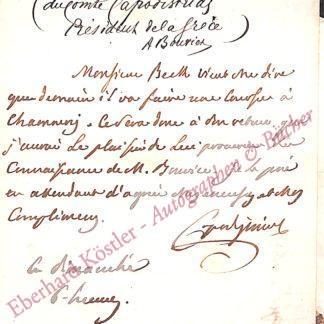 (du comte Capodistrias
Président de la Grèce
A Bouvier
Monsieur Beck vient me dire
que demain il va faire une course à
Chamouny. Ce sera donc à son retour que
j'aurai le plaisir de lui procurer la
connaissance de M. Bouvier. Je le prie
en attendant d'agréer
Compliments
Ce dimanche
6 heures
Eberhard Köstler - Autographen & Bücher